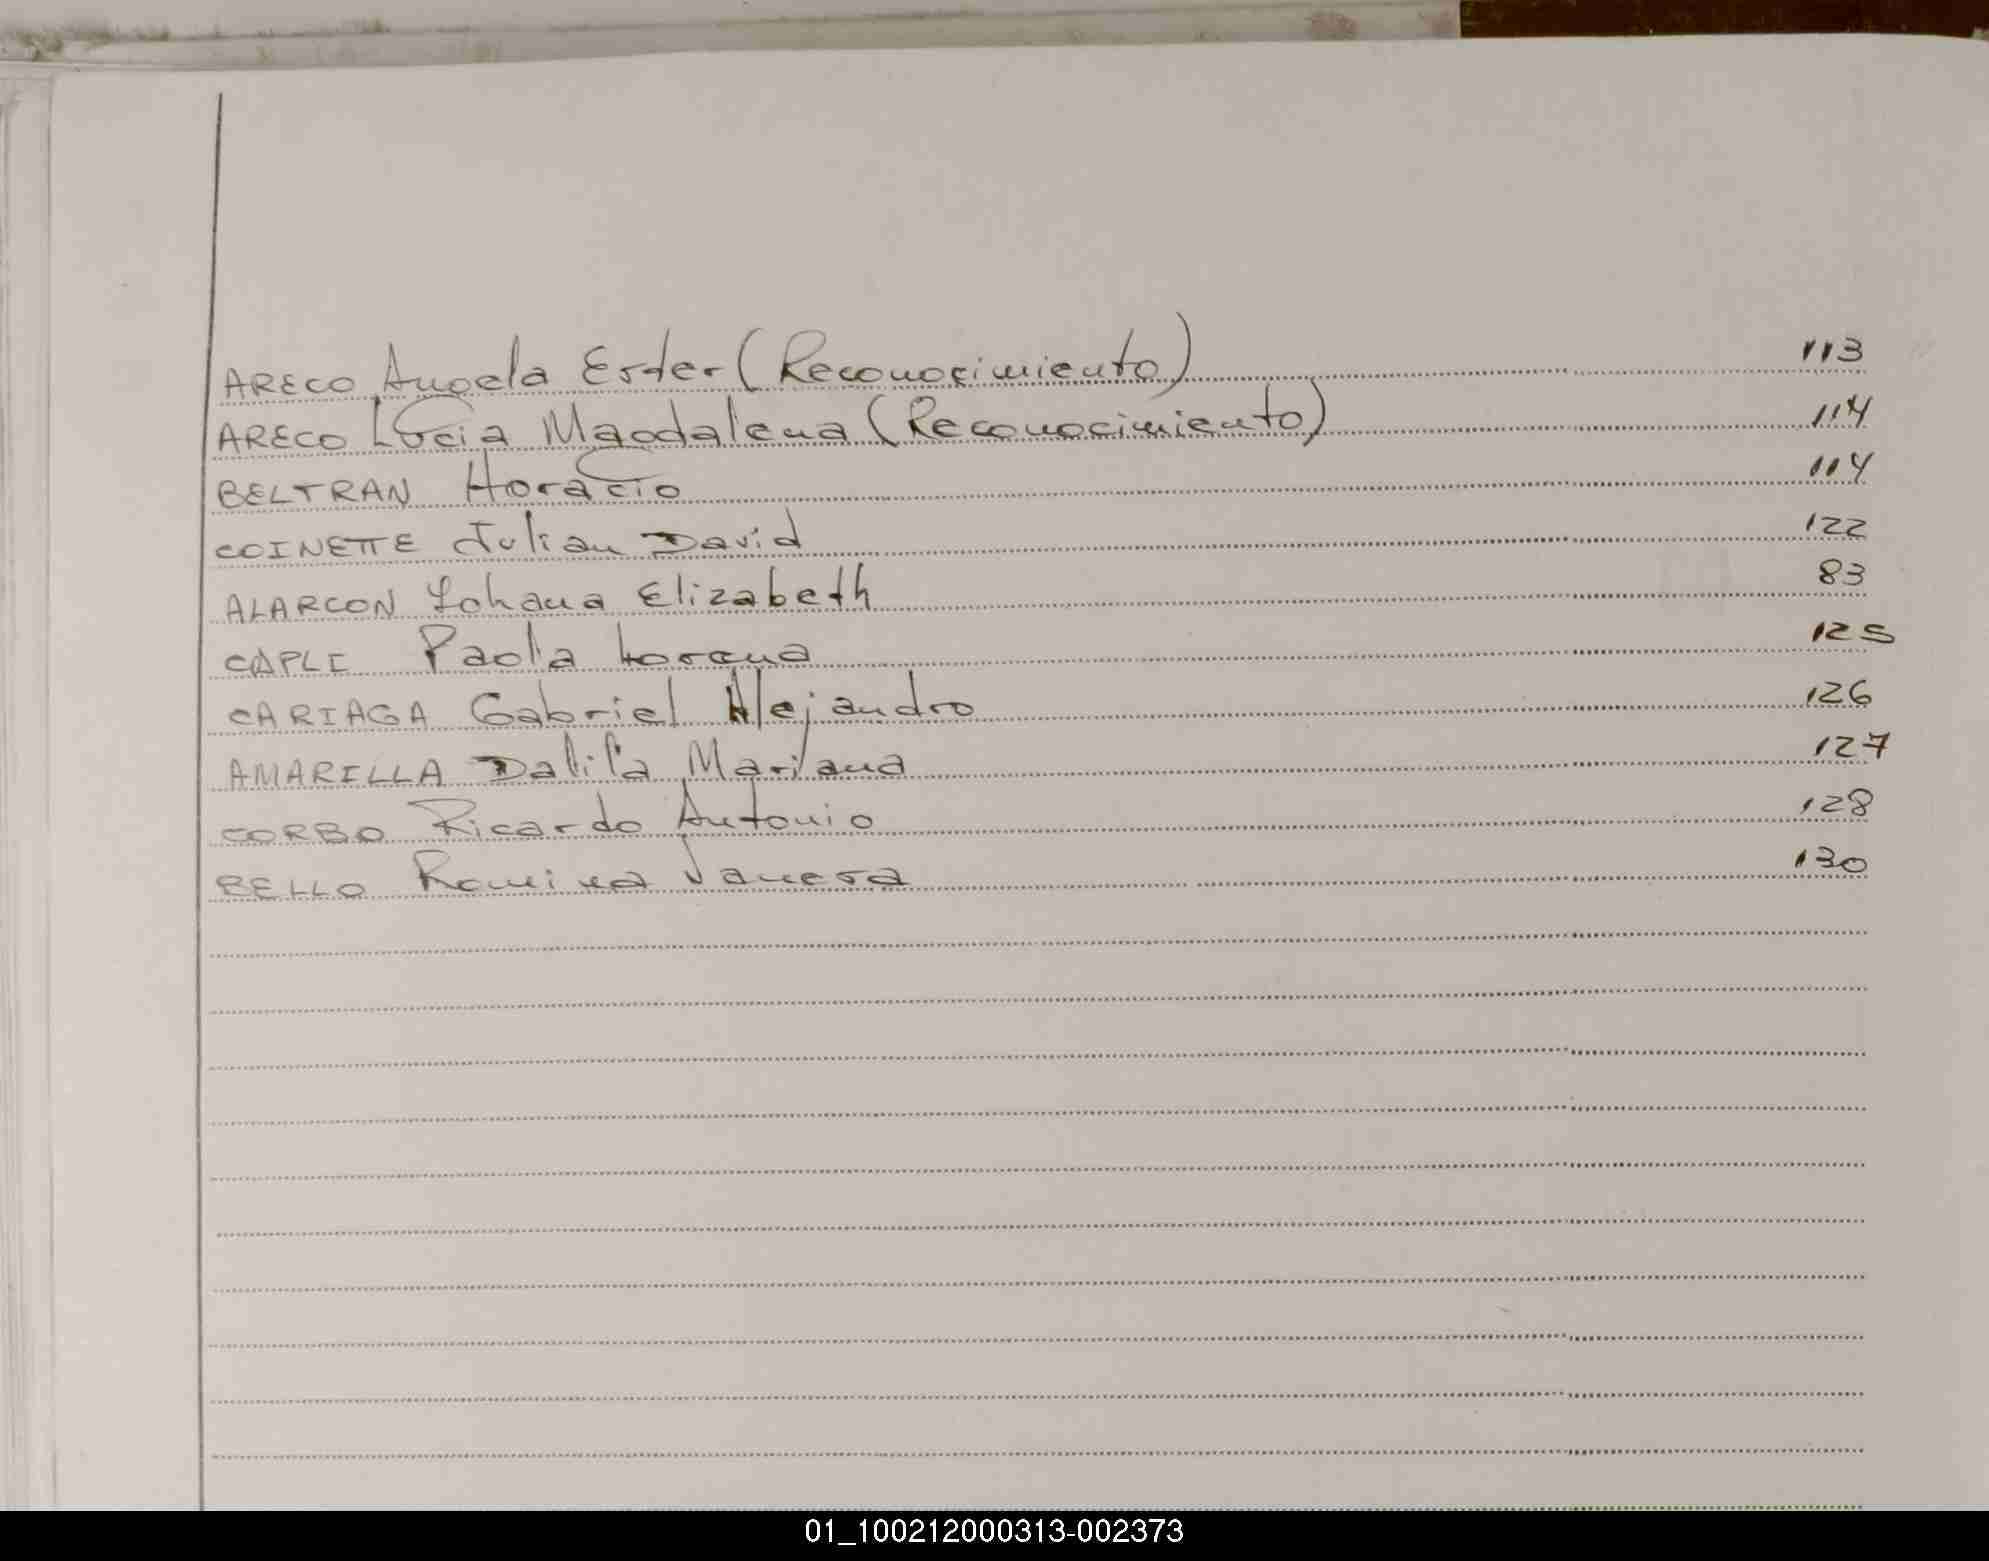 ARECO Angela Ester (Reconocimiento) 113
ARECO Lucia Magdalena (Reconocimiento) 114
BELTRAN Horacio 114
COINETTE Julian David 122
ALARCON Yohana Elizabeth 83
CAPLI Paola Lorena 125
CARIAGA Gabriel Alejandro 126
AMARILLA Dalila Mariana 127
CORBO Ricardo Antonio 128
BELLO Romina Vanesa 130
01_100212000313-002373